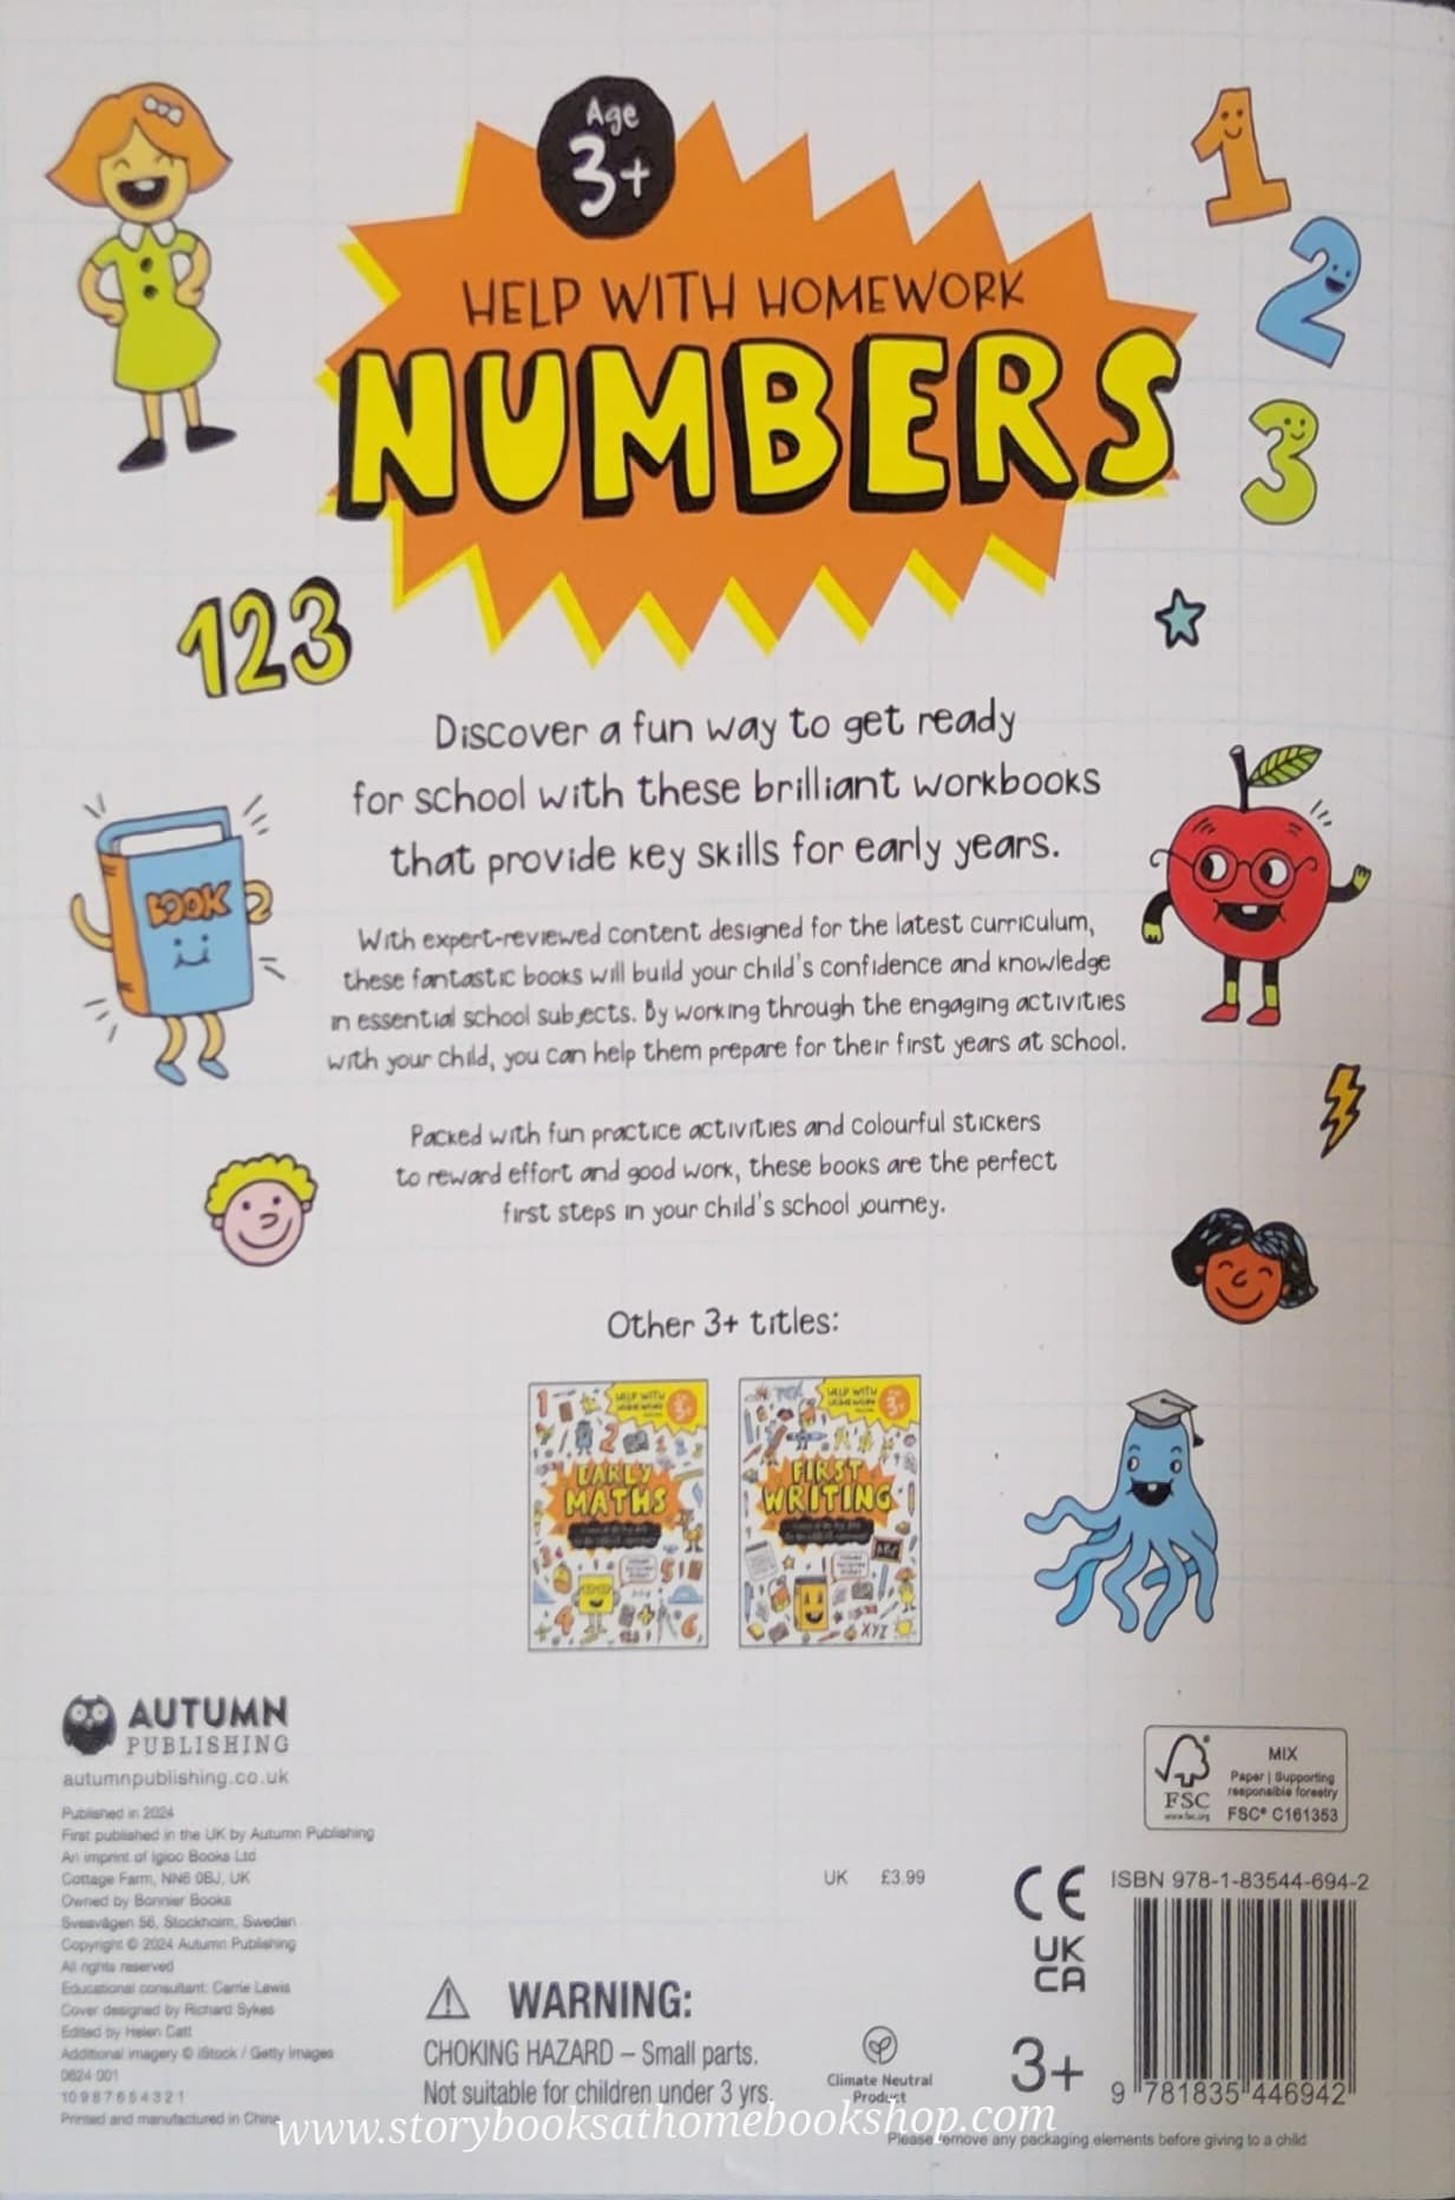 Age
3+
HELP WITH HOMEWORK
NUMBERS
1
2
3
123
Discover a fun way to get ready
for school with these brilliant workbooks
that provide key skills for early years.
BOOK
With expert-reviewed content designed for the latest curriculum,
these fantastic books will build your child's confidence and knowledge
in essential school subjects. By working through the engaging activities
with your child, you can help them prepare for their first years at school.
Packed with fun practice activities and colourful stickers
to reward effort and good work, these books are the perfect
first steps in your child's school journey.
Other 3+ titles:
HELP WITH
HOMEWORK
3+
EARLY
MATHS
HELP WITH
HOMEWORK
3+
FIRST
WRITING
XYZ
AUTUMN
PUBLISHING
autumnpublishing.co.uk
Published in 2024
First published in the UK by Autumn Publishing
An imprint of Igloo Books Ltd
Cottage Farm, NN6 0BJ, UK
Owned by Bonnier Books
Sveavägen 56, Stockholm, Sweden
Copyright © 2024 Autumn Publishing
All rights reserved
Educational consultant: Carrie Lewis
Cover designed by Richard Sykes
Edited by Helen Catt
Additional imagery © iStock / Getty Images
0624 001
10 9 8 7 6 5 4 3 2 1
Printed and manufactured in China
UK £3.99
WARNING:
CHOKING HAZARD – Small parts.
Not suitable for children under 3 yrs.
Climate Neutral
Product
FSC
www.fsc.org
MIX
Paper | Supporting
responsible forestry
FSC® C161353
CE
UK
CA
3+
ISBN 978-1-83544-694-2
9 781835 446942
Please remove any packaging elements before giving to a child
www.storybooksathomebookshop.com